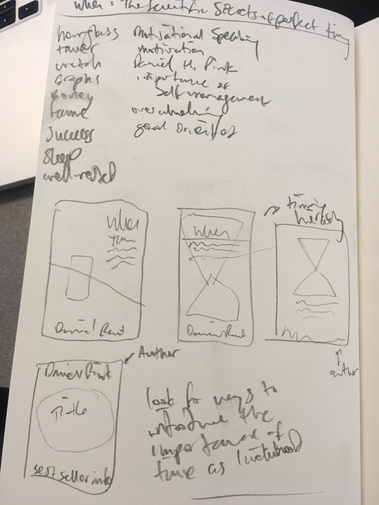 When: The Scientific Secrets of perfect timing
hourglass
tower
watch
Graphs
money
fame
success
sleep
well-rested
motivational Speaking
motivation
Daniel H. Pink
importance of
Self management
overwhelming
goal oriented
When
Daniel Pink
When
Daniel Pink
timing
author
Author
Daniel Pink
Title
best seller info
look for ways to
introduce the
importance of
time as